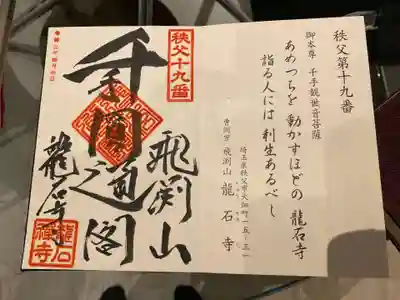 秩父第十九番
御本尊 千手観世音菩薩
あめつちを 動かすほどの 龍石寺
詣る人には 利生あるべし
埼玉県秩父市大畑町一五ー三一
曹洞宗 飛渕山 龍石寺
秩父十九番
飛渕山
千手圓通閣
龍石寺
龍石寺